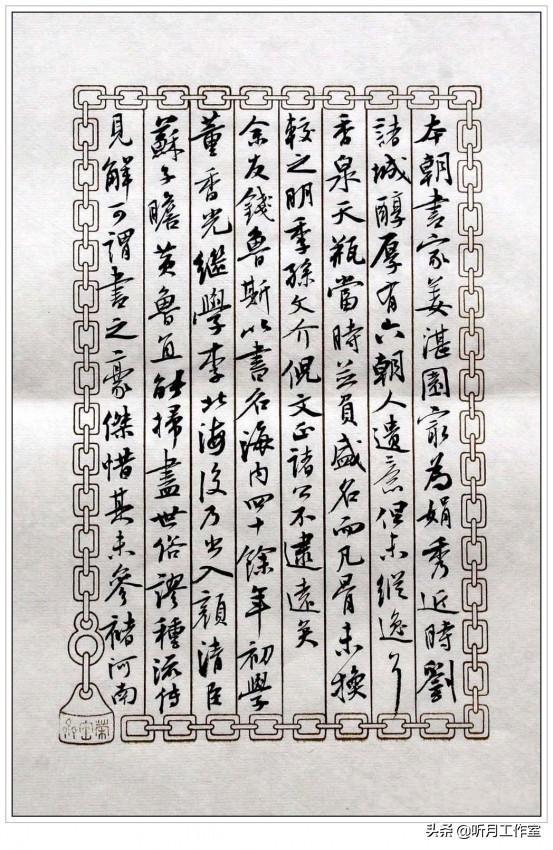 本朝書家姜湛園最為娟秀近時劉
諸城醇厚有六朝人遺意但未縱逸耳
香泉天瓶當時並負盛名而凡骨未換
較之明季孫文介倪文正諸公不逮遠矣
余友錢魯斯以書名海内四十餘年初學
董香光繼學李北海後乃出入顏清臣
蘇子瞻黄魯直能掃盡世俗謬種流傳
見解可謂書之豪傑惜其未參褚河南
榮宝斋
头条 @听月工作室